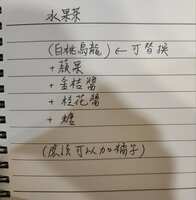 水果茶
(白桃烏龍) ← 可替換
+ 蘋果
+ 金桔醬
+ 桂花醬
+ 糖
(應該可以加柚子)